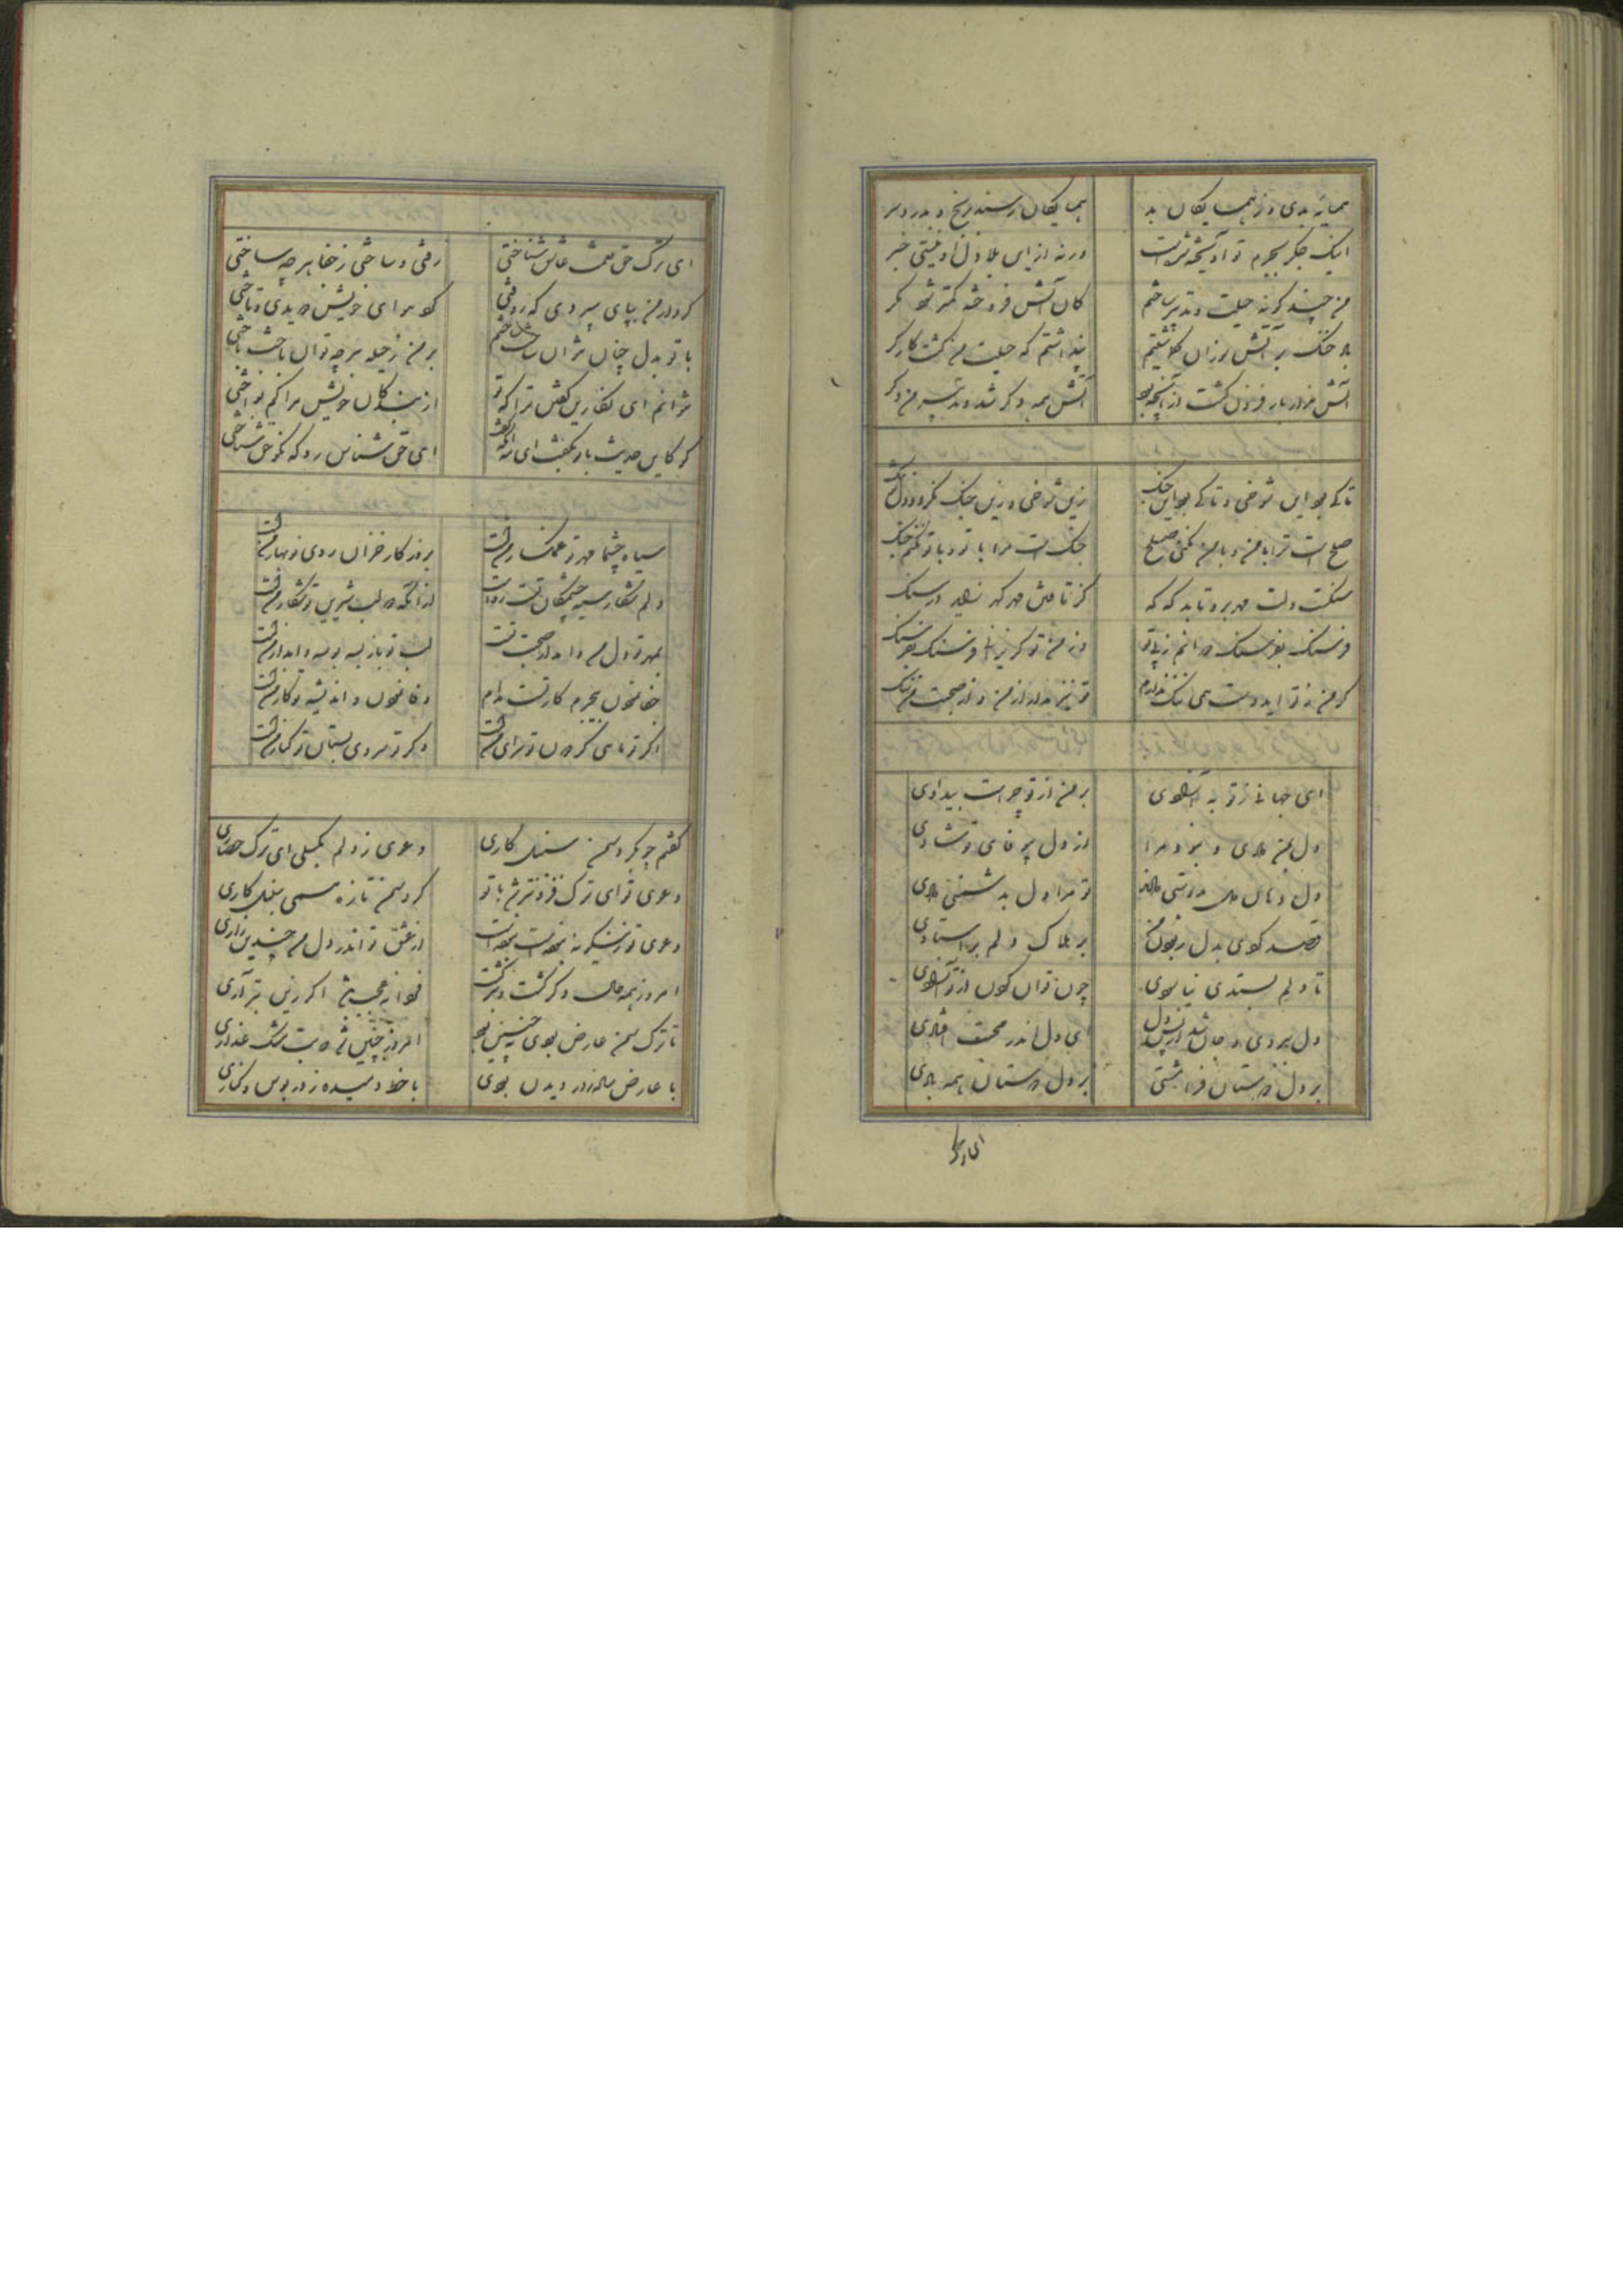 همسایه بدی و ز همسایگان بد همسایگان رسند برنج و بدرد سر
اینک جگر بجرم تو آویخته شدست ورنه ازین بلا دل او نیستی خبر
من چند گونه حیلت و تدبیر ساختم کان آتش فروخته کمتر شود مگر
بر آتش پنداشتم که حیلت من گشت کارگر
آتش هزار بار فزون گشت از آنچه بود آتش همه دگر شد و تدبیر من دگر
تا کی بود این شوخی و تا کی بود این جنگ زین شوخی و زین جنگ نگردد دل تنگ
صلح است ترا با من و با من نکنی صلح جنگ است مرا با تو و با تو نکنم جنگ
سنگست دلت مهر برو تابد که که کز تافتن مهر گهر زاید در سنگ
فرسنگ بفرسنگ دوانم ز پی تو وز من تو گریزانی فرسنگ بفرسنگ
گر من ز تو ایدوست همی ننگ ندارم تو نیز مدار از من و از صحبت من ننگ
ای جهانی ز تو به آزادی بر من از تو چراست بیدادی
دل من دادی و نبود مرا از دل بیوفای تو شادی
دل دهان دل بدوستی دادند تو مرا دل بدشمنی دادی
قصد کردی بدل ربودن من بر هلاک دلم بر استادی
تا دلم بستدی نیاسودی چون توان کرد از تو آزادی
دل ببردی و جان شد از پس دل ای دل اندر محنت افتادی
بر دل دوستان فرامشتی بر دل دوستان همه بادی
ای ترک
ای ترک حق نعمت عاشق شناختی رفتی و ساختی ز جفا هر چه ساختی
کردار من بپای سپردی که گوی هوای خویش بدیدی و تاختی
با تو بدل چنان بتوان ساخت ساختم بر من ز حیله هر چه توان باخت باختی
نتوانم ای نگارین گفتن ترا که تو از بندگان خویش مرا کم نواختی
کاین حدیث با تو بگفت ای مه آنکه گفت ای حق شناس رو که نکو حق شناختی
سیاه چشما مهر تو غمگسار منست بروزگار خزان روی تو بهار منست
دلم شکار سیه چشمکان تست رواست از آنکه دو لب شیرین تو شکار منست
بمهر تو دل من وامدار صحبت تست لب تو باز به بوسه وامدار منست
جفا نمودن بی جرم کار تست مدام وفا نمودن و اندیشه تو کار منست
اگر تو ماهی گردون تو سرای منست وگر تو سروی بستان تو کنار منست
گفتم چو بگرد سمن سنبل کاری دعوی ز دلم بگسلی ای ترک حصاری
دعوی تو ای ترک فزونتر شد با تو گرد سمن تازه همی سنبل کاری
دعوی تو زینگونه نبودست نبودست از عشق تو اندر دل من چندین زاری
امروز همه حال دگر گشت و دگر گشت فردا نه عجب باشد اگر زین بتر آری
تا ترک سمن عارض بودی نه چنین بود امروز چنین شد که بت مشک عذاری
با عارض ساده ز در دیدن بودی با خط دمیده ز در بوس و کناری